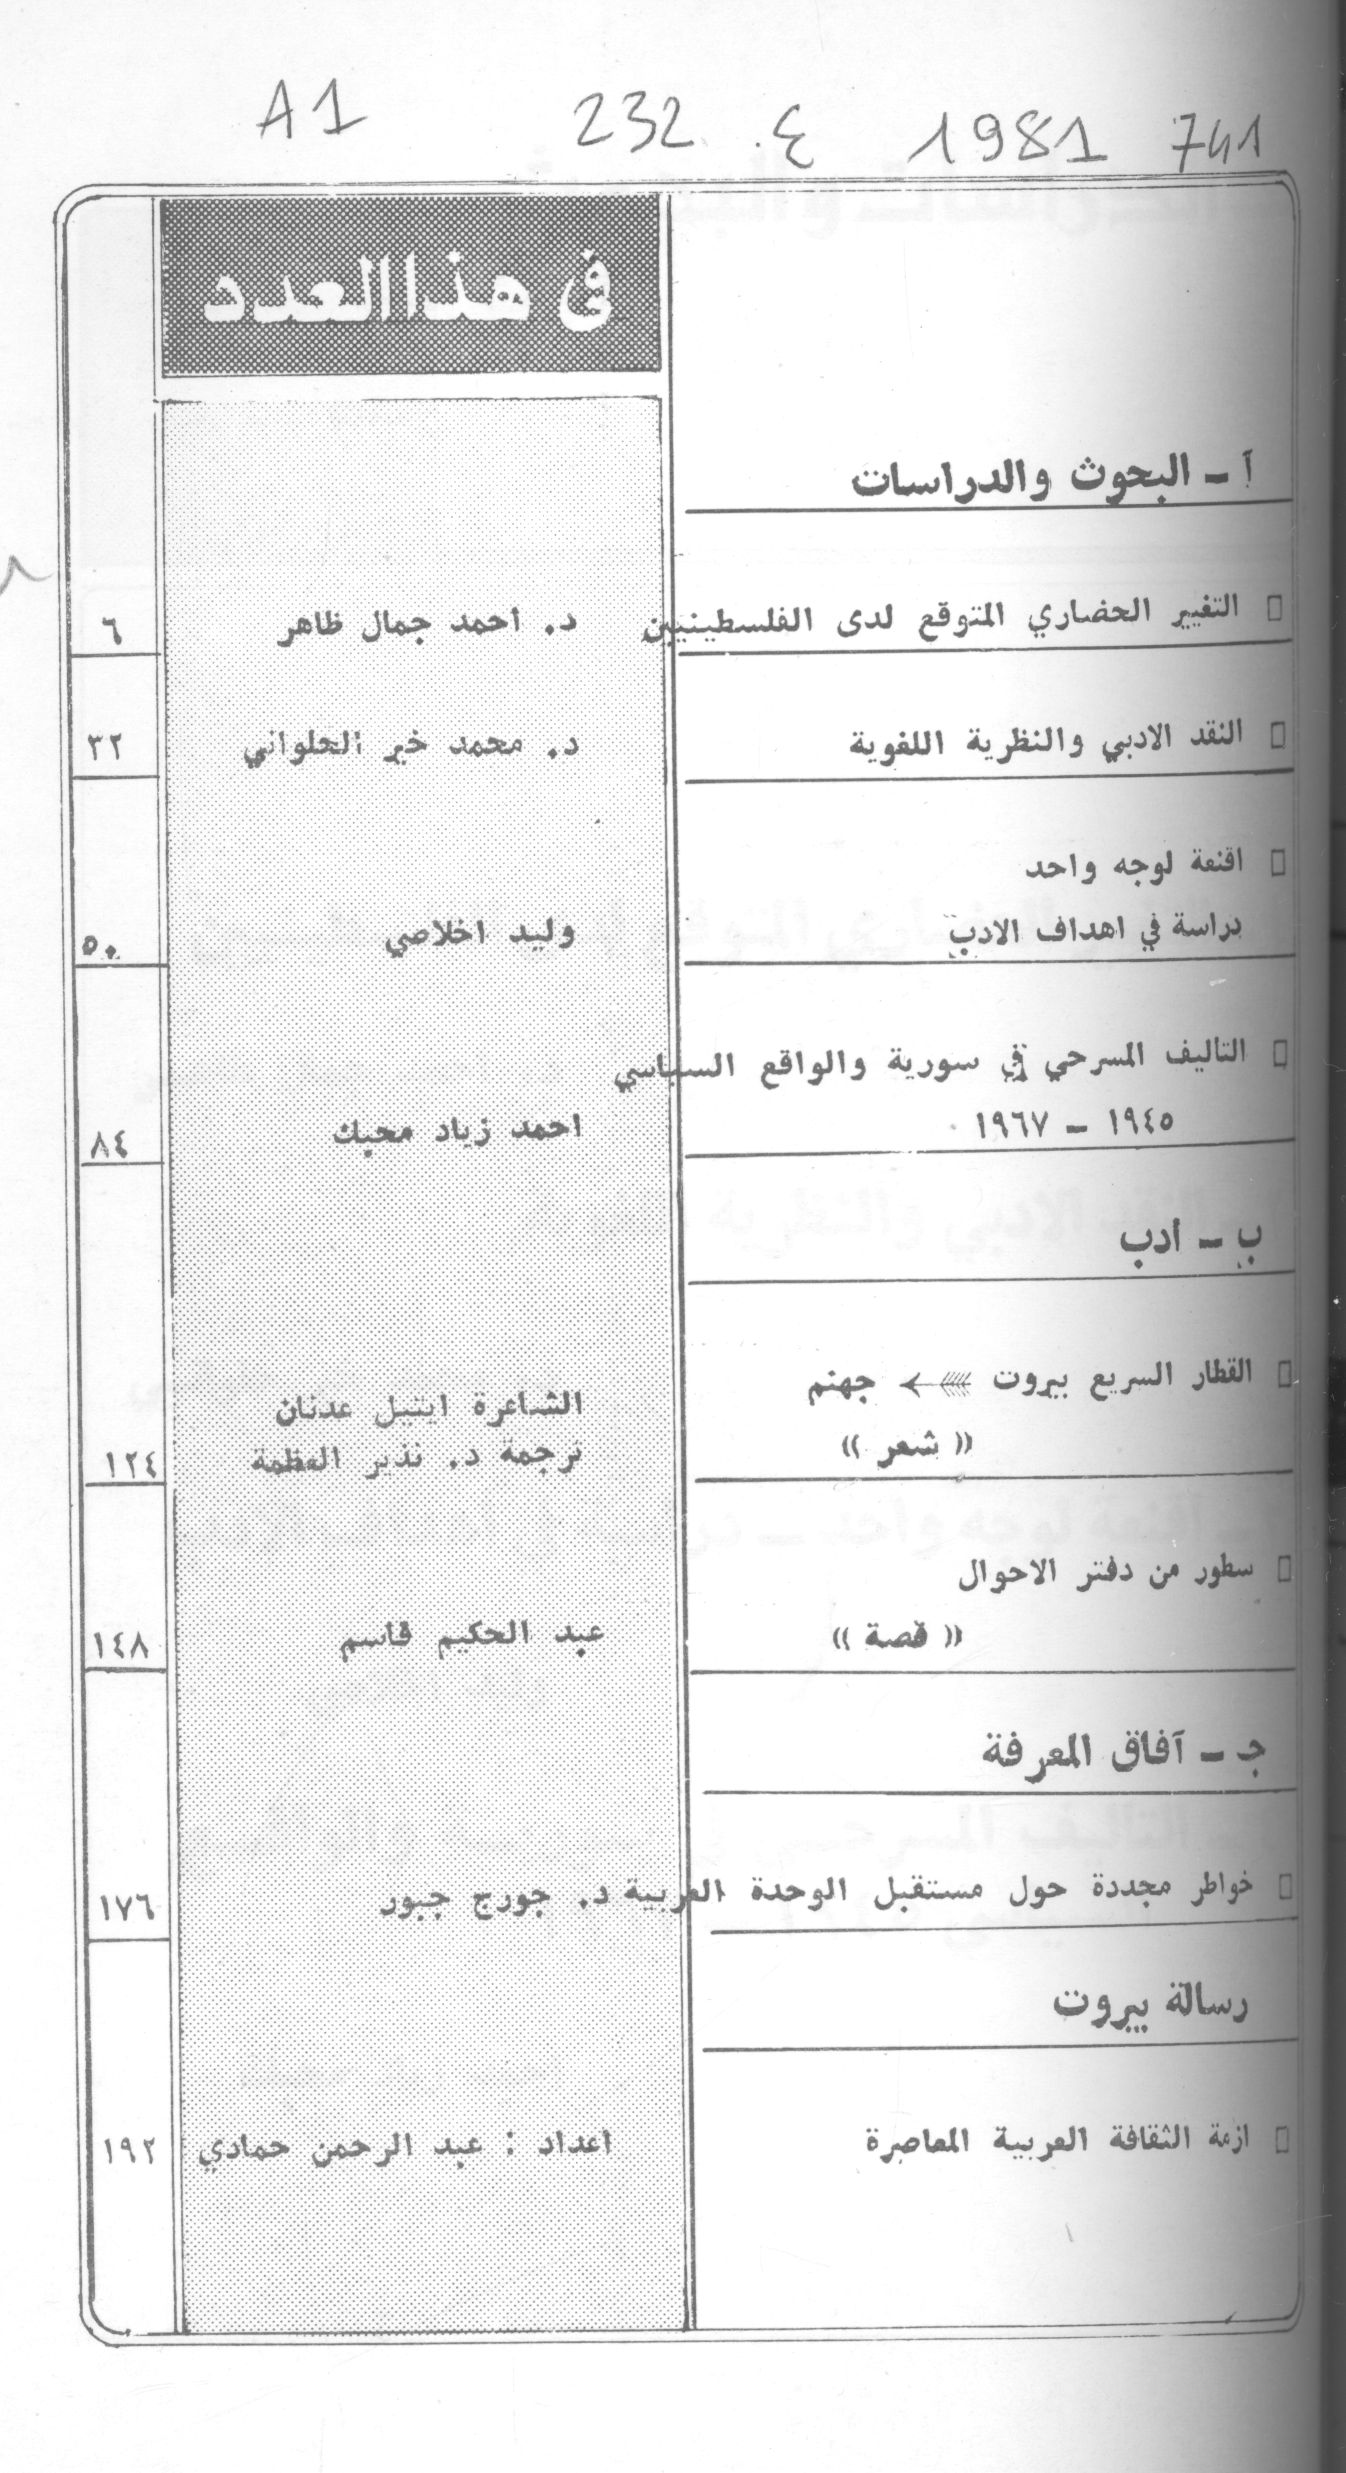 A1 232 ع 1981 741
في هذا العدد
أ ـ البحوث والدراسات
التغيير الحضاري المتوقع لدى الفلسطينيين د. احمد جمال ظاهر ٦
النقد الادبي والنظرية اللغوية د. محمد خير الحلواني ٣٢
اقنعة لوجه واحد
دراسة في اهداف الادب وليد اخلاصي ٥٠
التأليف المسرحي في سورية والواقع السياسي
١٩٤٥ ـ ١٩٦٧ احمد زياد محبك ٨٤
ب ـ أدب
القطار السريع بيروت ← جهنم الشاعرة ايتيل عدنان
(( شعر )) ترجمة د. نذير العظمة ١٢٤
سطور من دفتر الاحوال
(( قصة )) عبد الحكيم قاسم ١٤٨
جـ ـ آفاق المعرفة
خواطر مجددة حول مستقبل الوحدة العربية د. جورج جبور ١٧٦
رسالة بيروت
ازمة الثقافة العربية المعاصرة اعداد : عبد الرحمن حمادي ١٩٢